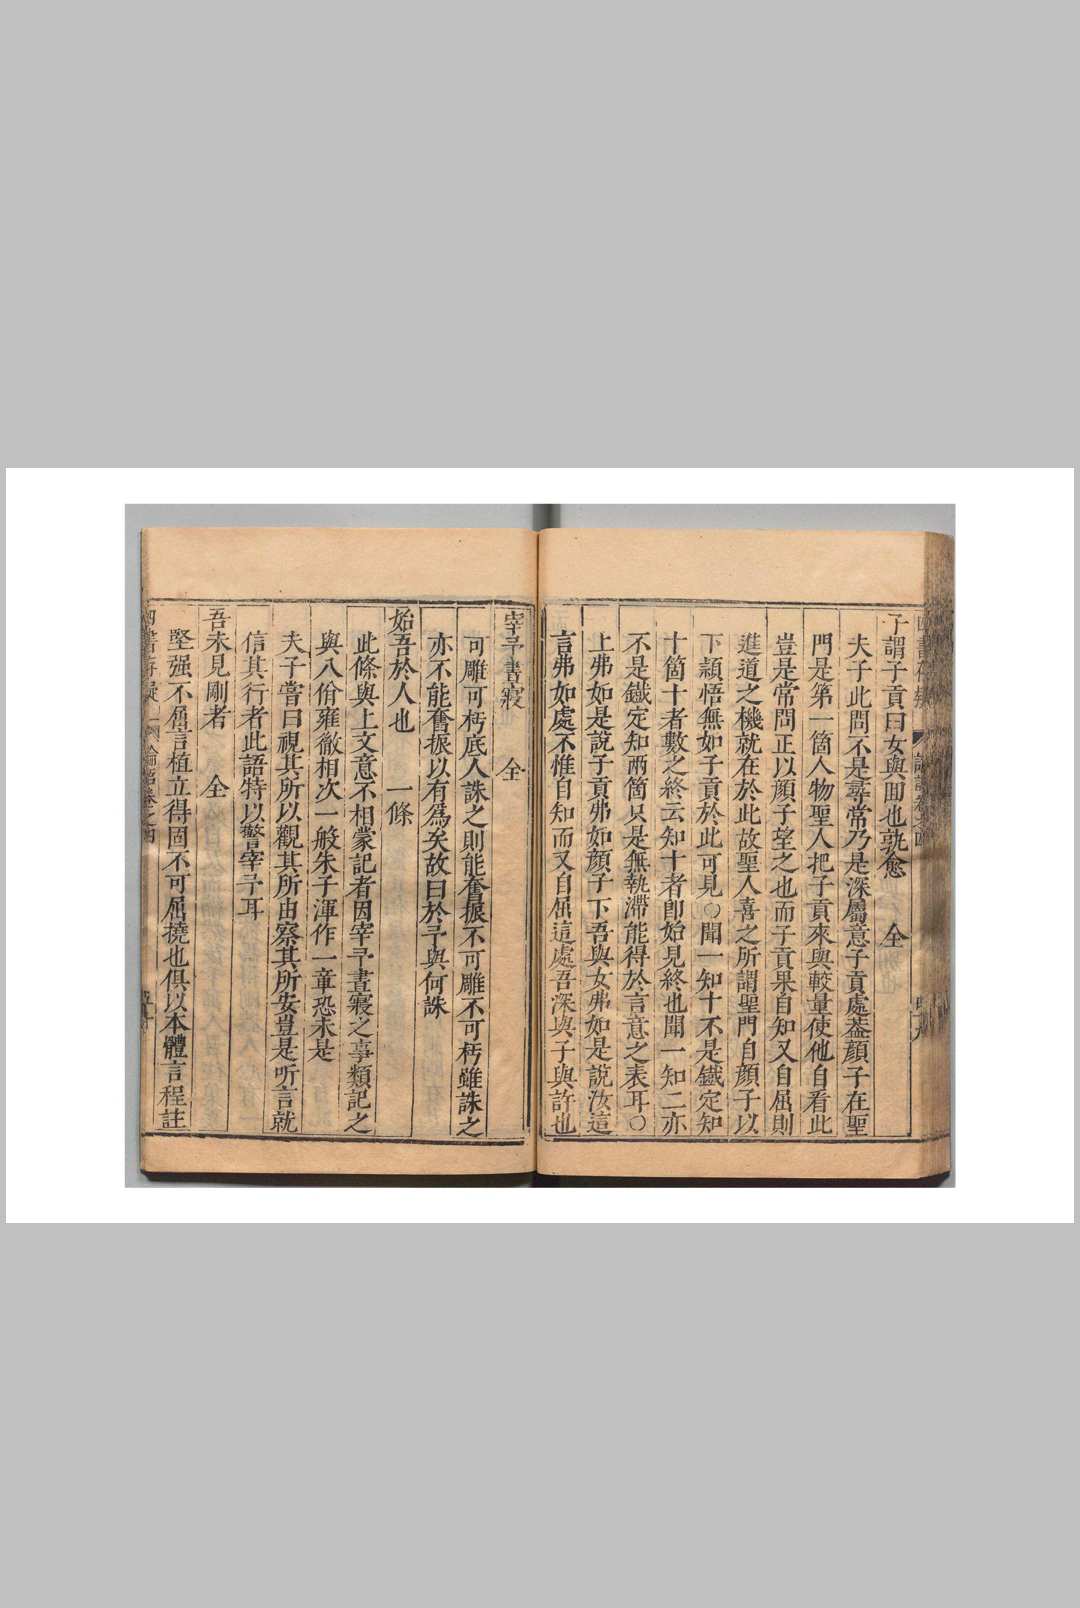 子謂子貢曰女與囬也孰愈　全
夫子此問不是尋常乃是深屬意子貢處蓋顔子在聖
門是第一箇人物聖人把子貢來與較量使他自看此
豈是常問正以顔子望之也而子貢果自知又自屈則
進道之機就在於此故聖人喜之所謂聖門自顔子以
下頴悟無如子貢於此可見○聞一知十不是鐵定知
十箇十者數之終云知十者即始見終也聞一知二亦
不是鐵定知兩箇只是無執滯能得於言意之表耳○
上弗如是說子貢弗如顔子下吾與女弗如是說汝這
言弗如處不惟自知而又自屈這處吾深與子與許也
宰予晝寢　全
可雕可杇底人誅之則能奮振不可雕不可杇雖誅之
亦不能奮振以有爲矣故曰於予與何誅
始吾於人也　一條
此條與上文意不相蒙記者因宰予晝寢之事類記之
與八佾雍徹相次一般朱子渾作一章恐未是
夫子嘗曰視其所以觀其所由察其所安豈是听言就
信其行者此語特以警宰予耳
吾未見剛者　全
堅强不屈言植立得固不可屈撓也俱以本體言程註
四書存疑　論語卷之四